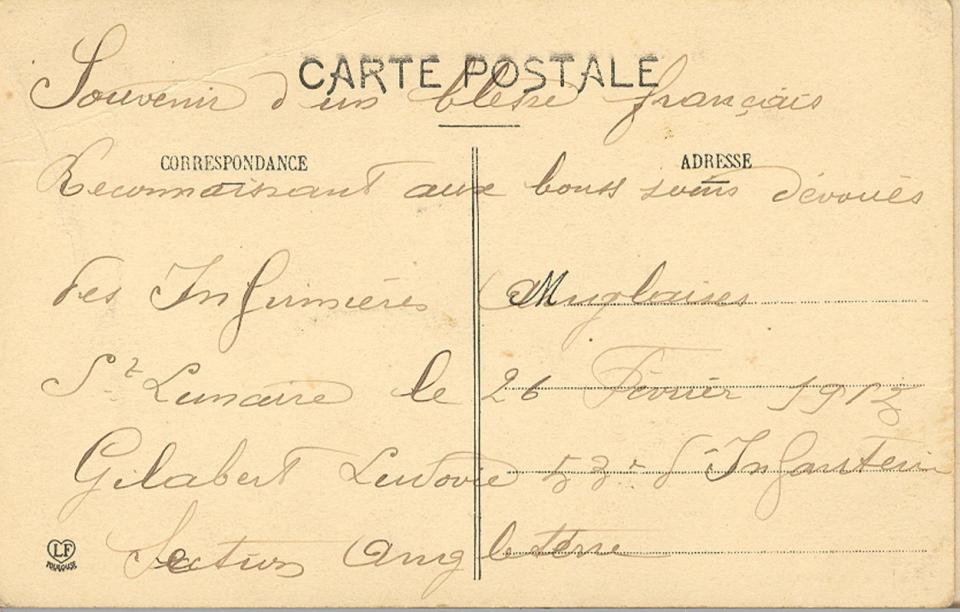 CARTE POSTALE
Souvenir d'un blessé français
CORRESPONDANCE
ADRESSE
Reconnaissant aux bons soins dévoués
des Infirmières Anglaises
St Lunaire le 26 Février 1915
Gilabert Ludovic 53e d'Infanterie
Section Angleterre
LF
TOULOUSE